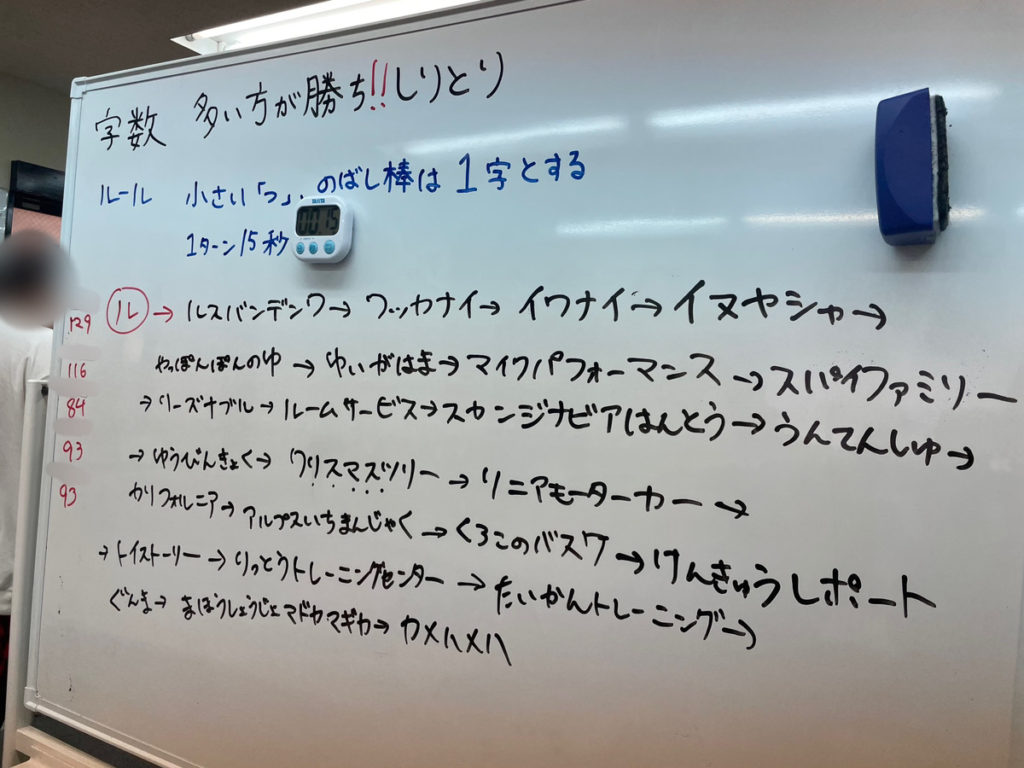 字数 多い方が勝ち!!しりとり
ルール 小さい「っ」、のばし棒は1字とする
1ターン15秒
00 15
129 ル→ルスバンデンワ→ワッカナイ→イワナイ→イヌヤシャ→
116 やっぽんぽんのゆ→ゆいがはま→マイクパフォーマンス→スパイファミリー
84 →リーズナブル→ルームサービス→スカンジナビアはんとう→うんてんしゅ→
93 →ゆうびんきょく→クリスマスツリー→リニアモーターカー→
93 カリフォルニア→アルプスいちまんじゃく→くろこのバスケ→けんきゅうレポート
→トイストーリー→りっとうトレーニングセンター→たいかんトレーニング→
ぐんま→まほうしょうじょマドカマギカ→カメハメハ